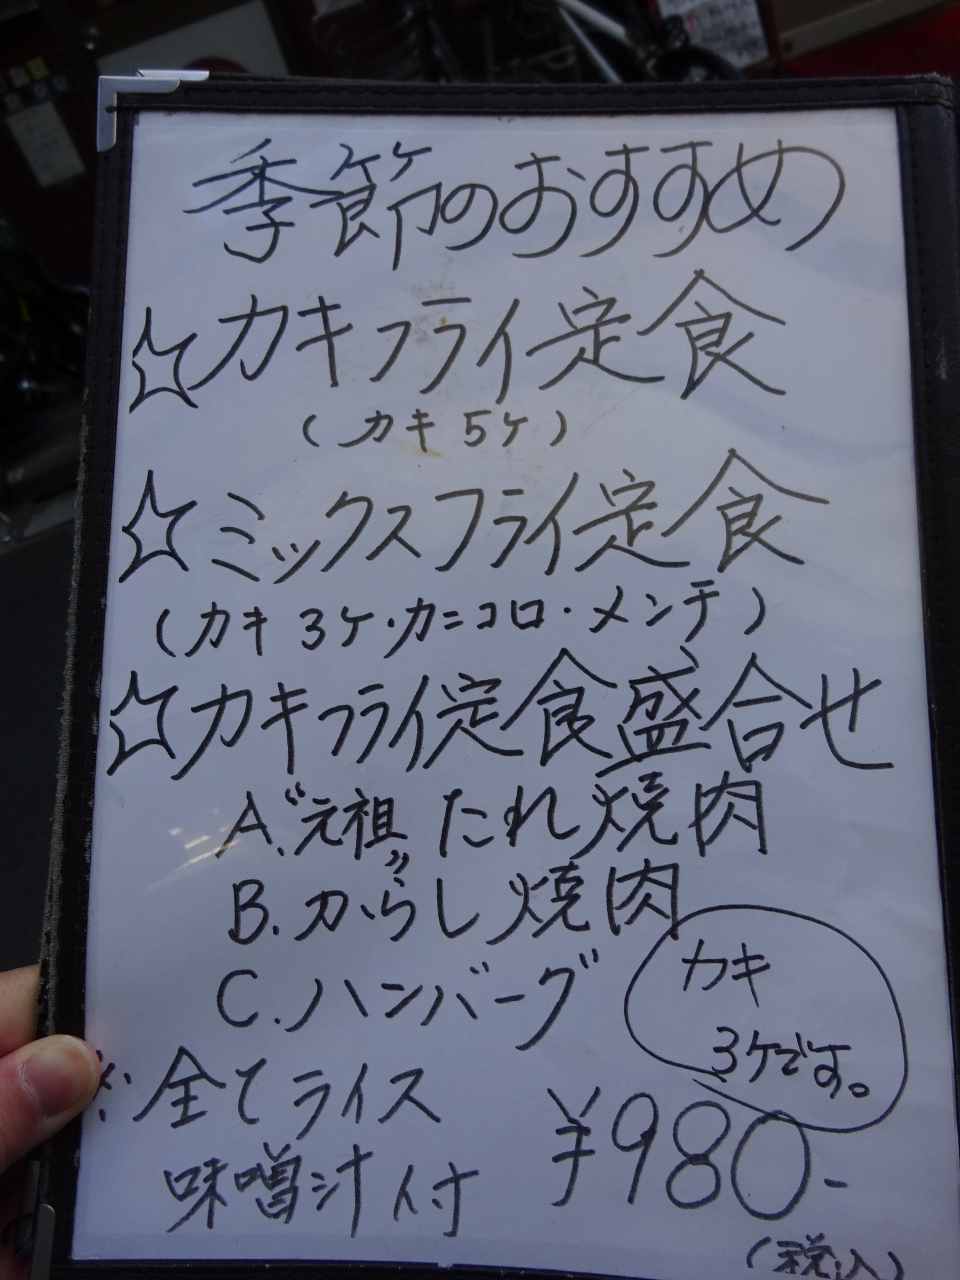 季節のおすすめ
☆カキフライ定食
（カキ5ケ）
☆ミックスフライ定食
（カキ3ケ・カニコロ・メンチ）
☆カキフライ定食盛合せ
A.“元祖”たれ焼肉
B.からし焼肉
C.ハンバーグ
カキ
3ケです。
※全てライス
味噌汁付
¥980-
（税込）